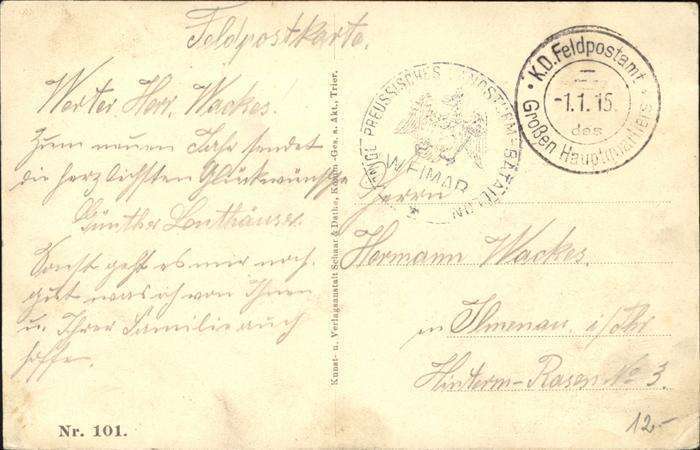 Feldpostkarte.
Werter Herr Wackes.
Zum neuen Jahr sendet
die herzlichsten Glückwünsche
Günther
Sonst geht es mir noch
gut was ich von Ihnen
u. Ihrer Familie auch
hoffe.
Nr. 101.
Kunst- u. Verlagsanstalt Schaar & Dathe, Komm.-Ges. a. Akt., Trier.
KGL. PREUSSISCHES LANDSTURM-BATAILLON
WEIMAR
K.D. Feldpostamt
-1.1.15.
des
Großen Hauptquartiers
Herrn
Hermann Wackes.
in Ilmenau i/Thr
Hinterm-Rasen No 3.
12.-